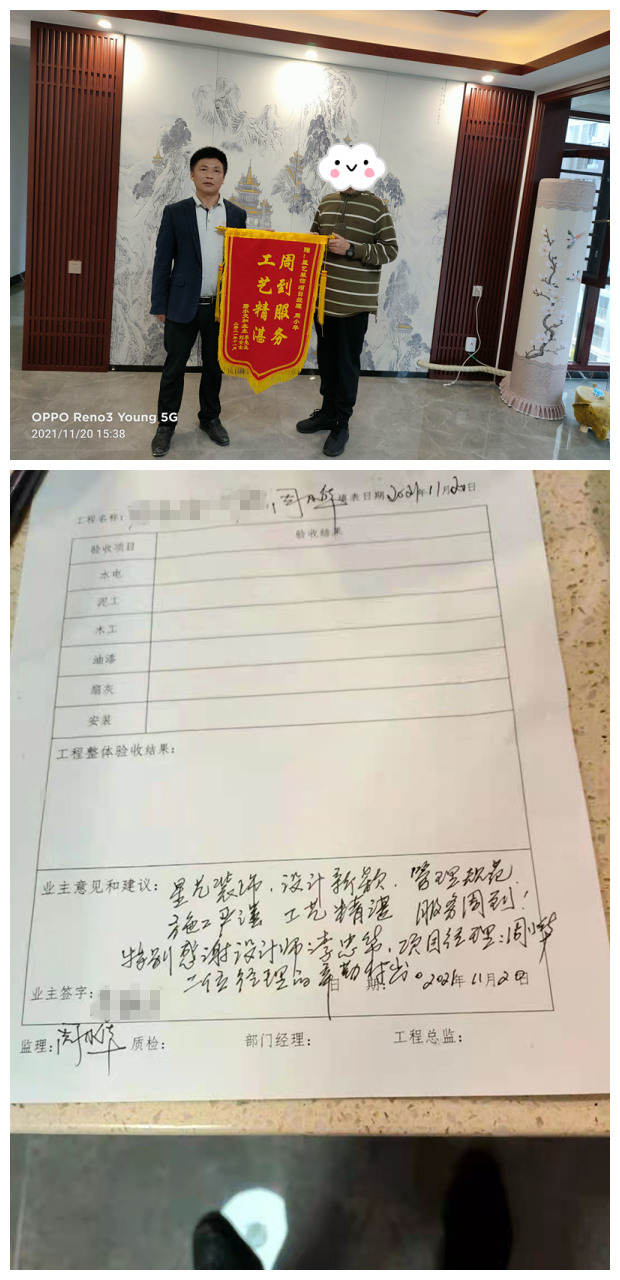 赠:星艺装饰项目经理 周小华
周到服务
工艺精湛
OPPO Reno3 Young 5G
2021/11/20 15:38
工程名称:
填表日期2021年11月20日
验收项目
验收结果
水电
泥工
木工
油漆
扇灰
安装
工程整体验收结果:
业主意见和建议:星艺装饰、设计新颖、管理规范
施工严谨 工艺精湛 服务周到!
特别感谢设计师:李忠华、项目经理:周小华
二位经理的辛勤付出。
业主签字:
日 期:2021年11月20日
监理:周小华 质检: 部门经理: 工程总监: